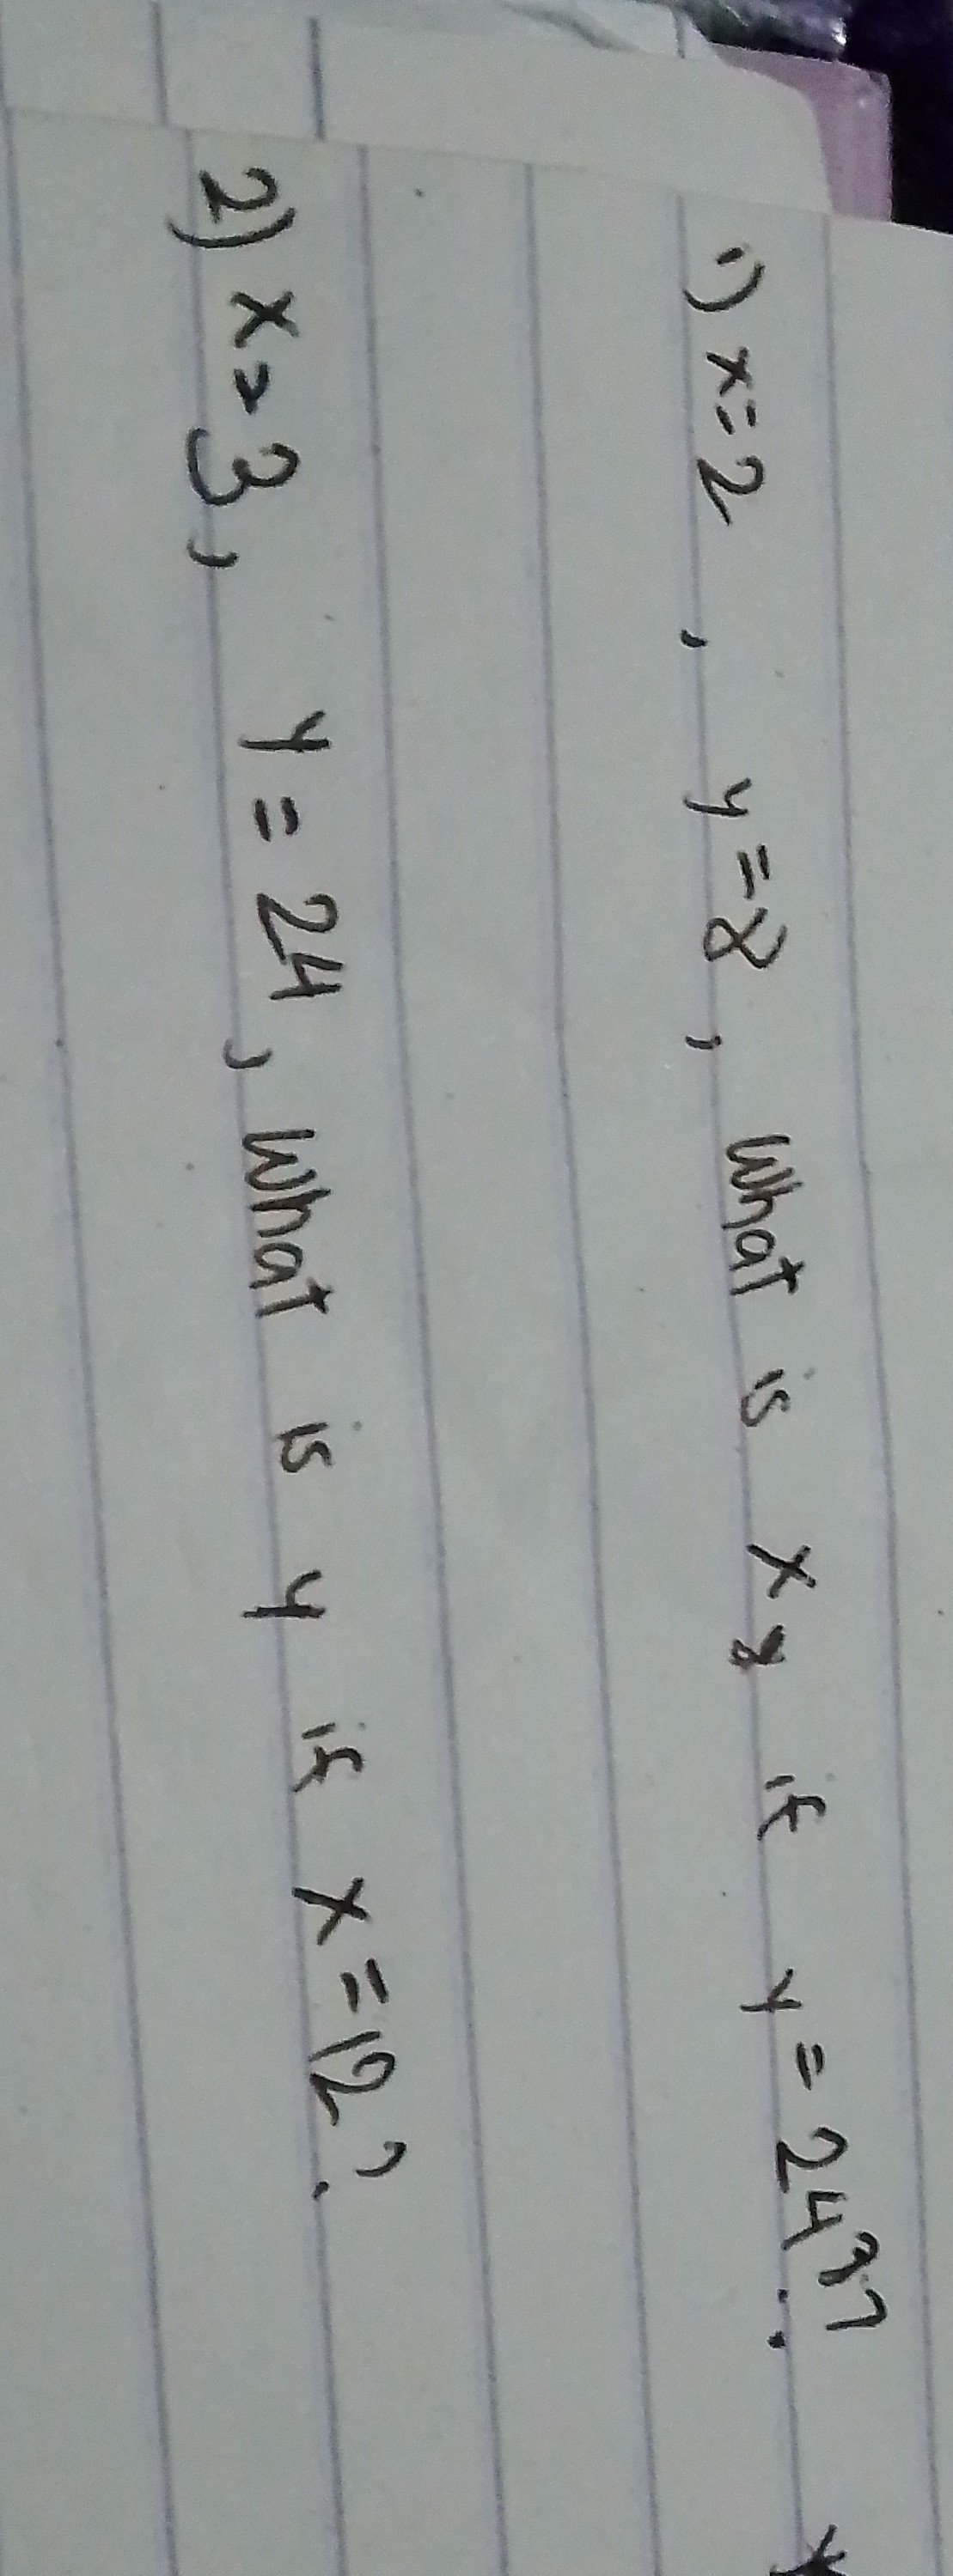 1) x = 2 , y = 8 , What is x if y = 24??
2) x = 3 , y = 24 , What is y if x = 12 ?